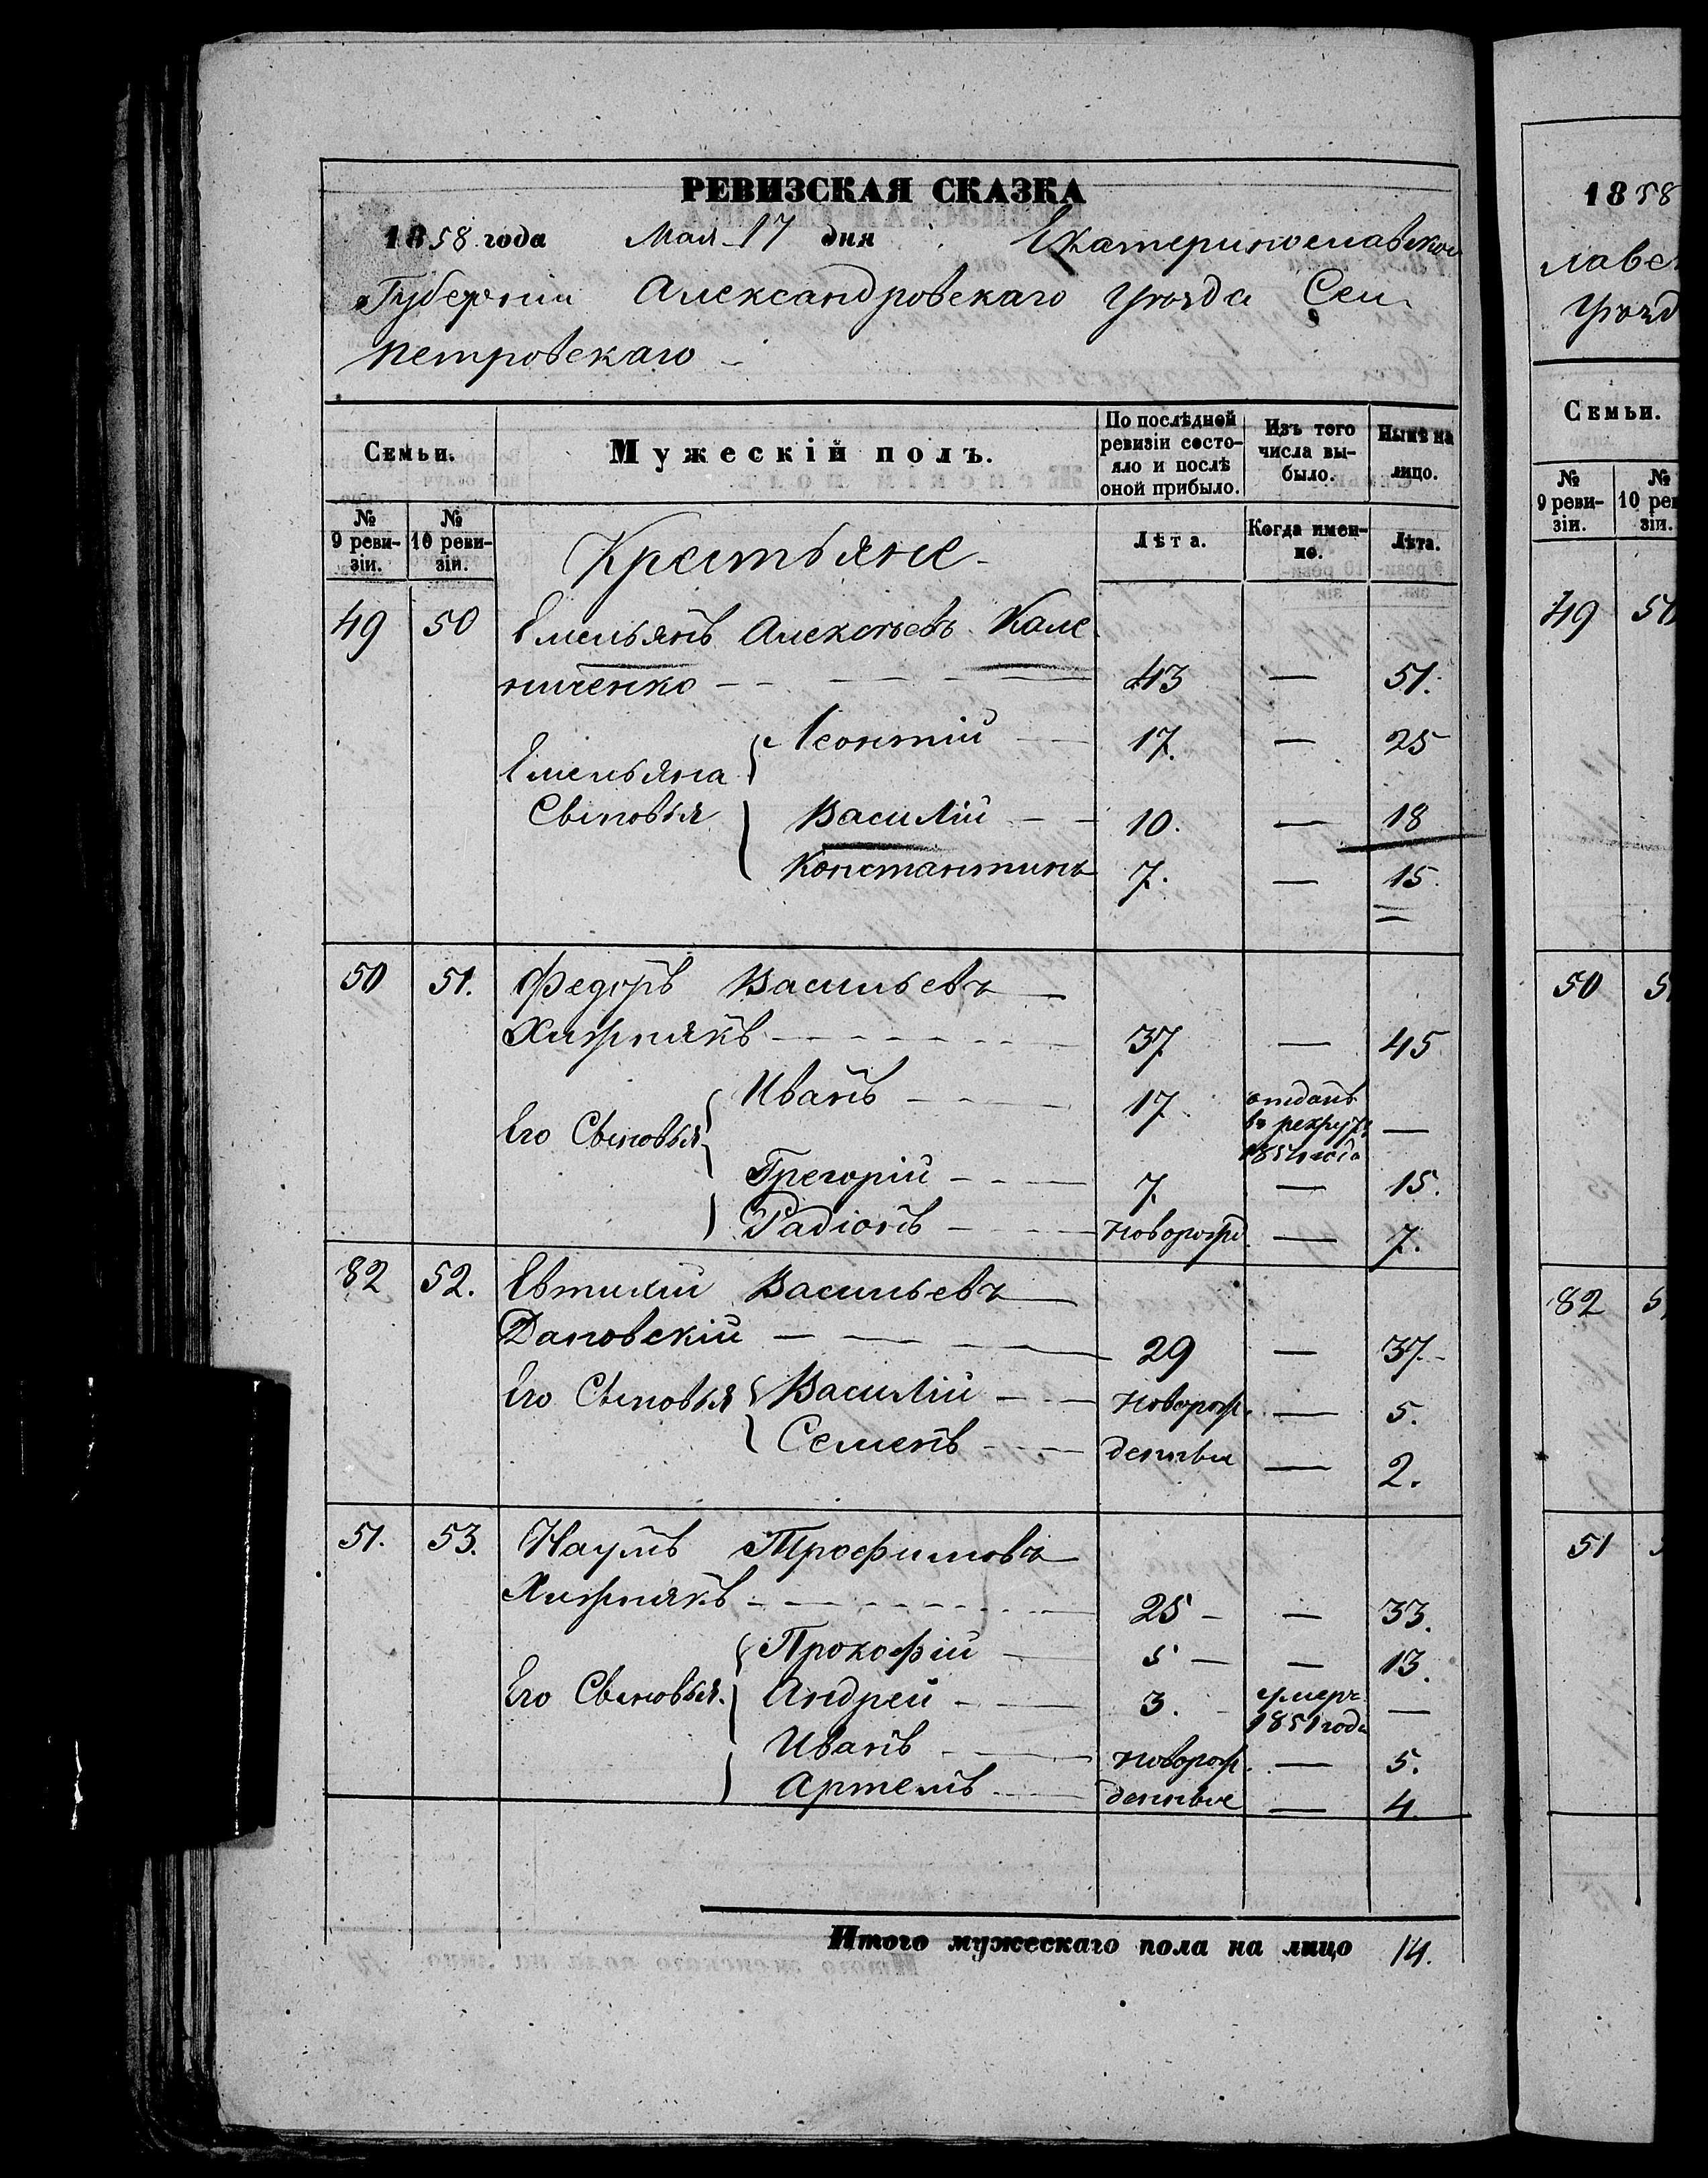 РЕВИЗСКАЯ СКАЗКА
1858 года Мая 17 дня Екатеринославской
Губернии Александровскаго Уѣзда Села
Петровскаго
Семьи. Мужескій полъ. По послѣдней ревизіи состояло и послѣ оной прибыло. Изъ того числа выбыло. Нынѣ на лицо.
№ 9 ревизіи. № 10 ревизіи. Крестьяне Лѣта. Когда именно. Лѣта.
49 50 Емельянъ Алексѣевъ Кале
ниченко 43 — 51.
Емельяна Сыновья Леонтій 17. — 25
Василій 10. — 18
Константинъ 7. — 15.
50 51. Федоръ Васильевъ
Хижнякъ 37 — 45
Его Сыновья Иванъ 17 отданъ в рекруты 1854 года —
Грегорій 7. — 15.
Радіонъ новорожд — 7.
82 52. Евтихій Васильевъ
Дановскій 29 — 37.
Его Сыновья Василій новорож. — 5.
Семенъ денные — 2.
51. 53. Наумъ Трофимовъ
Хижнякъ 25 — 33.
Его Сыновья Прокофій 5 — 13.
Андрей 3. умеръ 1851 года —
Иванъ новорож. — 5.
Артемъ денные — 4.
Итого мужескаго пола на лицо 14.
1858
лавс
Уѣзд
Семьи.
№ 9 ревизіи. № 10 рев зіи.
49 50
50 5
82 5
51